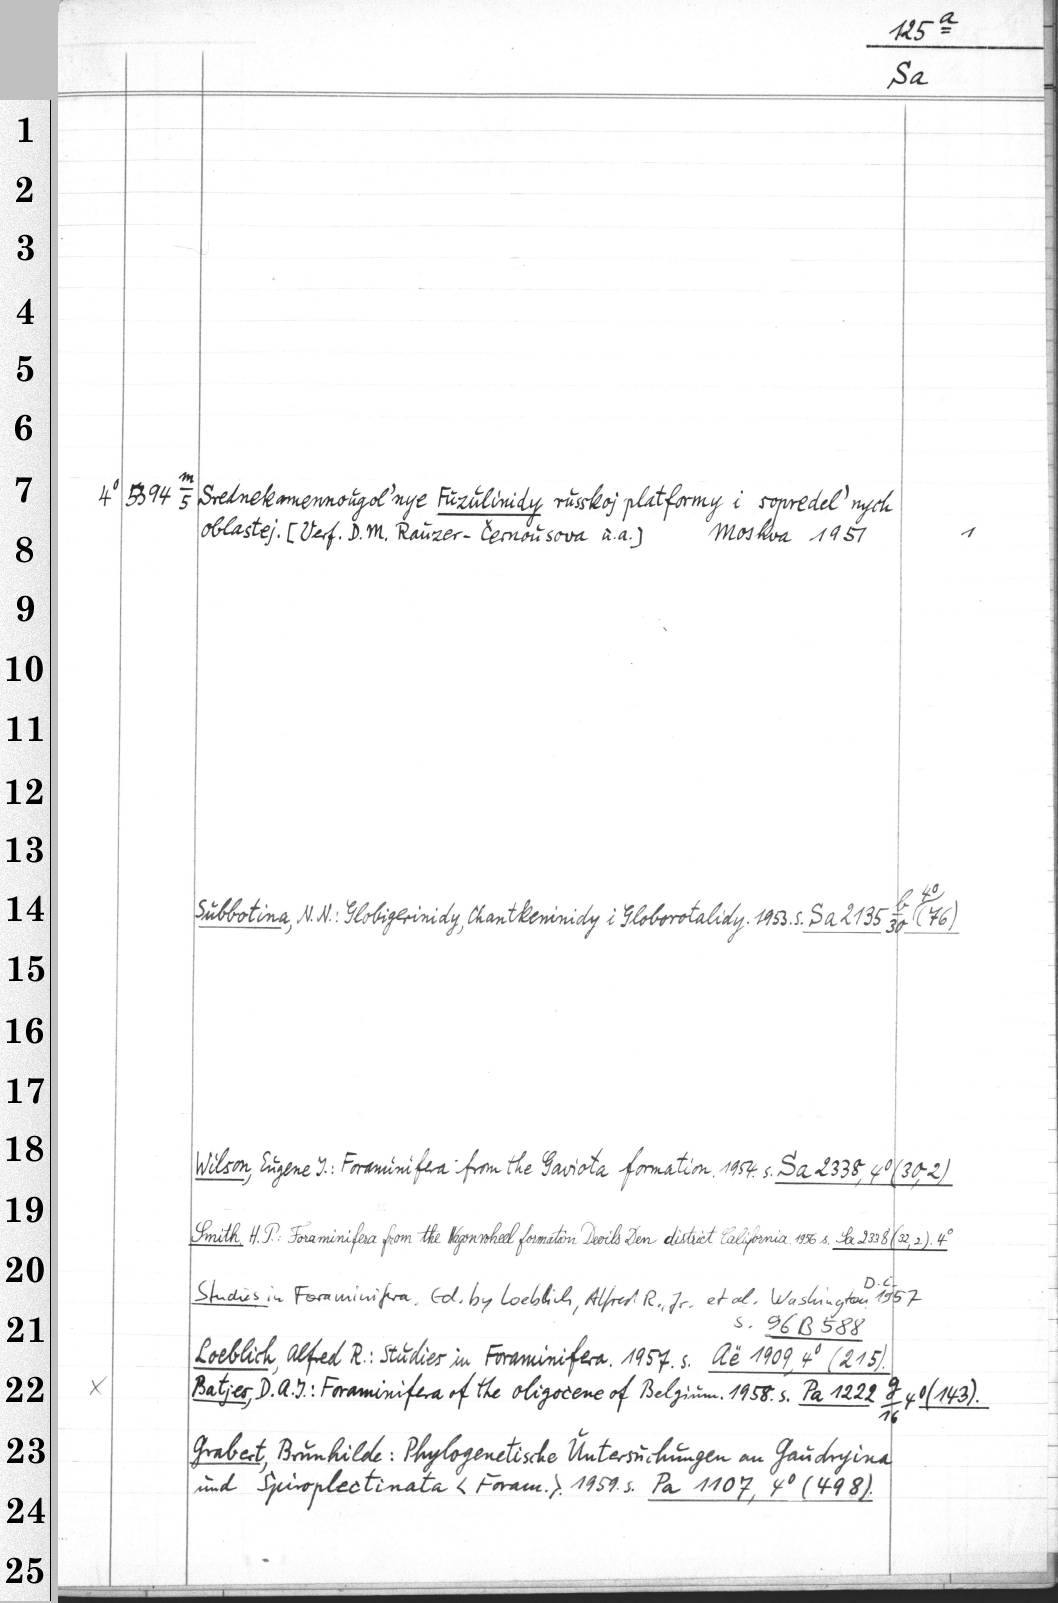 125 a
Sa
1
2
3
4
5
6
7
4° 5394 m/5 Srednekamennougol'nye Fuzulinidy russkoj platformy i sopredel'nych
8
oblastej. [Verf. D.M. Rauzer-Černousova u.a.] Moskva 1951 1
9
10
11
12
13
4°
14
Subbotina, N.N.: Globigerinidy, Chantkeninidy i Globorotalidy. 1953. s. Sa 2135 b/30 (76)
15
16
17
18
Wilson, Eugene J.: Foraminifera from the Gaviota formation. 1954. s. Sa 2338, 4° (30,2)
19
Smith, H.P.: Foraminifera from the Wagonwheel formation Devils Den district California. 1956 s. Sa 2338 (32,2). 4°
20
D.C.
Studies in Foraminifera. Ed. by Loeblich, Alfred R., Jr. et al. Washington 1957
21
s. 96 B 588
Loeblich, Alfred R.: Studies in Foraminifera. 1957. s. Aë 1909, 4° (215).
22
x Batjes, D.A.J.: Foraminifera of the oligocene of Belgium. 1958. s. Pa 1222 g/16 4° (143).
23
Grabert, Brunhilde: Phylogenetische Untersuchungen an Gaudryina
und Spiroplectinata < Foram.>. 1959. s. Pa 1107, 4° (498).
24
25